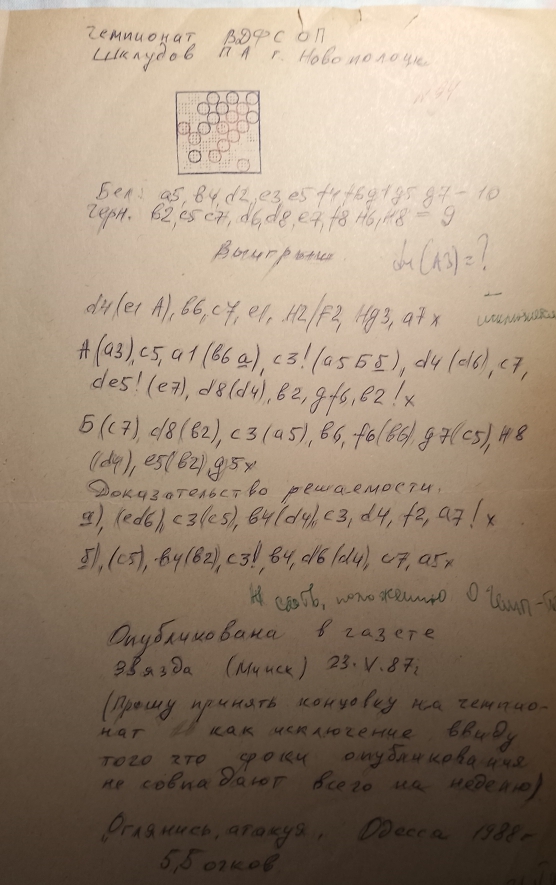 Чемпионат ВДФС ОП
Шклудов П А г. Новополоцк
№44
Бел: а5, в4, d2, е3, е5 f4 f6 g1 g5 g7 - 10
Черн. в2, с5 с7, d6, d8, е7, f8 h6, h8 = 9
Выигрыш
(А3) = ?
d4 (е1 А), в6, с7, е1, Н2/F2, Нg3, а7 х
А (а3), с5, а1 (в6 а), с3! (а5 Б б), d4 (d6), с7,
de5! (е7), d8 (d4), в2, gf6, в2! х
Б (с7), d8 (в2), с3 (а5), в6, f6 (в6), g7 (с5), н8
(d4), е5 (в2), g5 х
Доказательство решаемости.
а), (ed6), с3 (с5), в4 (d4), с3, d4, f2, а7! х
б), (с5), в4 (в2), с3!, в4, d6 (d4), с7, а5 х
положению О Чемп-
Опубликована в газете
Звязда (Минск) 23.V.87г
(Прошу принять концовку на чемпио-
нат как исключение ввиду
того что сроки опубликования
не совпадают всего на неделю)
Оглянись, атакуя, Одесса 1988г
5,5 очков